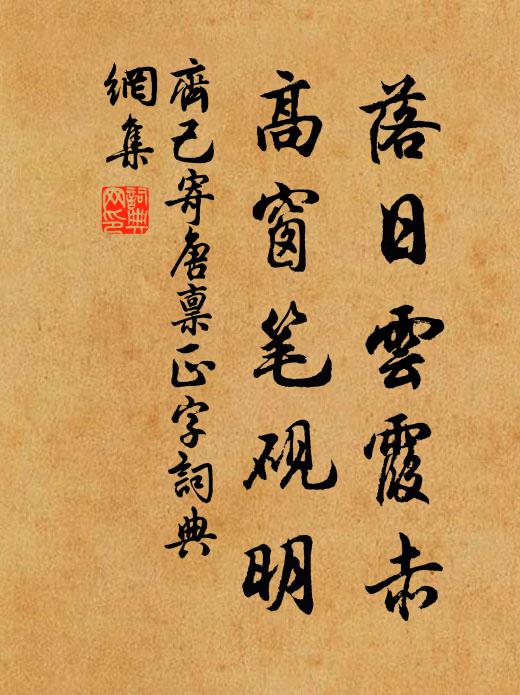 落日雲霞赤
高窗笔砚明
齊己寄唐稟正字詞典
網集
詞典
网印